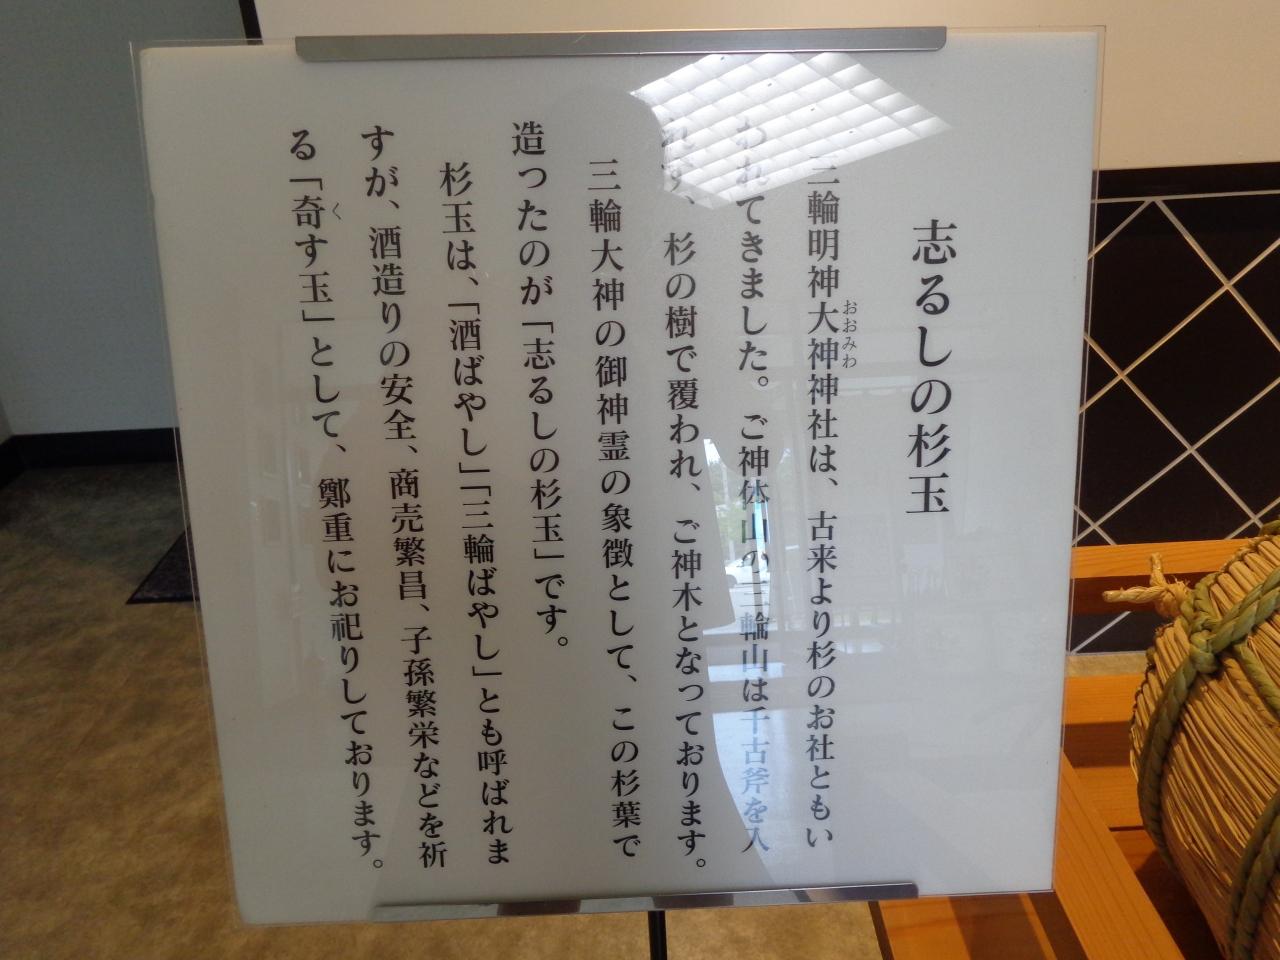 志るしの杉玉
三輪明神大神神社は、古来より杉のお社ともい
おおみわ
われてきました。ご神体山の三輪山は千古斧を入
れず、杉の樹で覆われ、ご神木となっております。
三輪大神の御神霊の象徴として、この杉葉で
造ったのが「志るしの杉玉」です。
杉玉は、「酒ばやし」「三輪ばやし」とも呼ばれま
すが、酒造りの安全、商売繁昌、子孫繁栄などを祈
る「奇す玉」として、鄭重にお祀りしております。
く